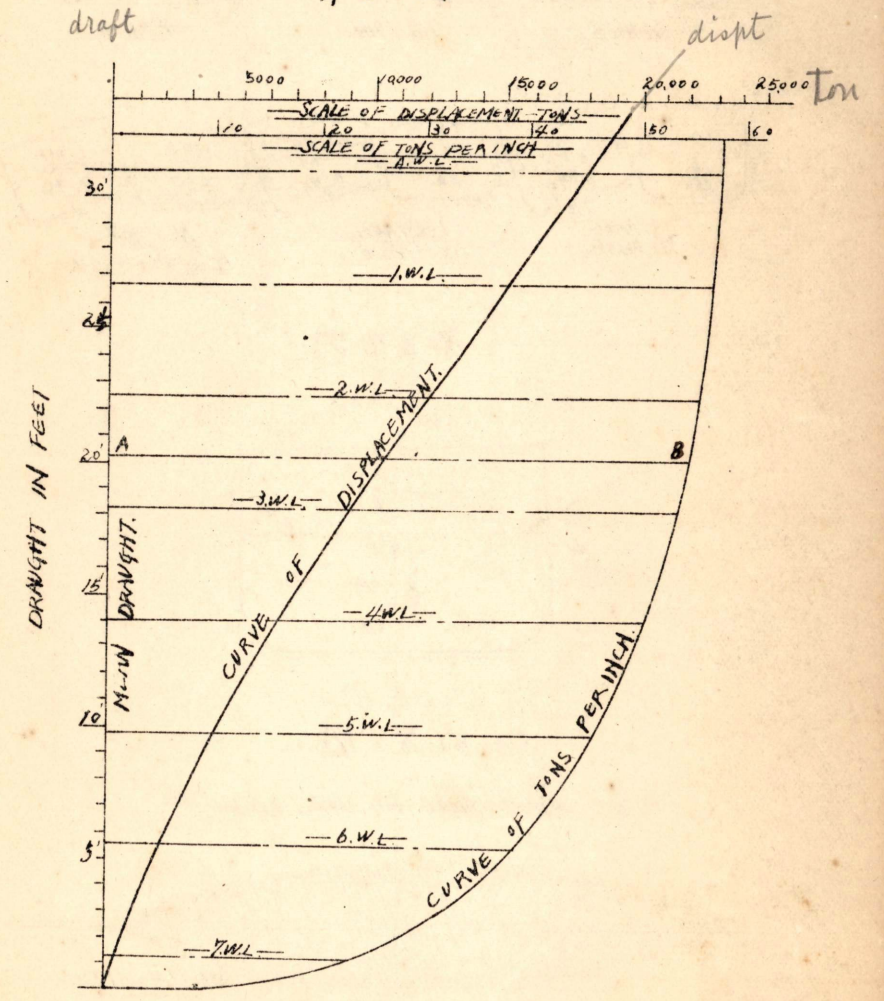 draft
dispt
5000 10,000 15,000 20,000 25,000 Ton
SCALE OF DISPLACEMENT TONS
10 20 30 40 50 60
SCALE OF TONS PER INCH
A.W.L.
30'
1.W.L.
2.W.L.
20' A B
3.W.L.
15'
4.W.L.
10'
5.W.L.
5'
6.W.L.
7.W.L.
DRAUGHT IN FEET
DRAUGHT.
CURVE OF DISPLACEMENT.
CURVE OF TONS PER INCH.